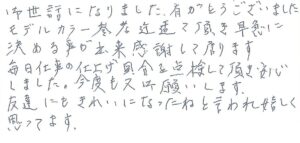 御世話になりました、有がとうございました
モデルカラー参考近辺迄て頂き早急に
決める事が出来感謝して居ります
毎日仕事の仕上げ具合を点検して頂き安心
しました。今度も又御願いします。
友達にもきれいになったねと言われ嬉しく
思ってます。